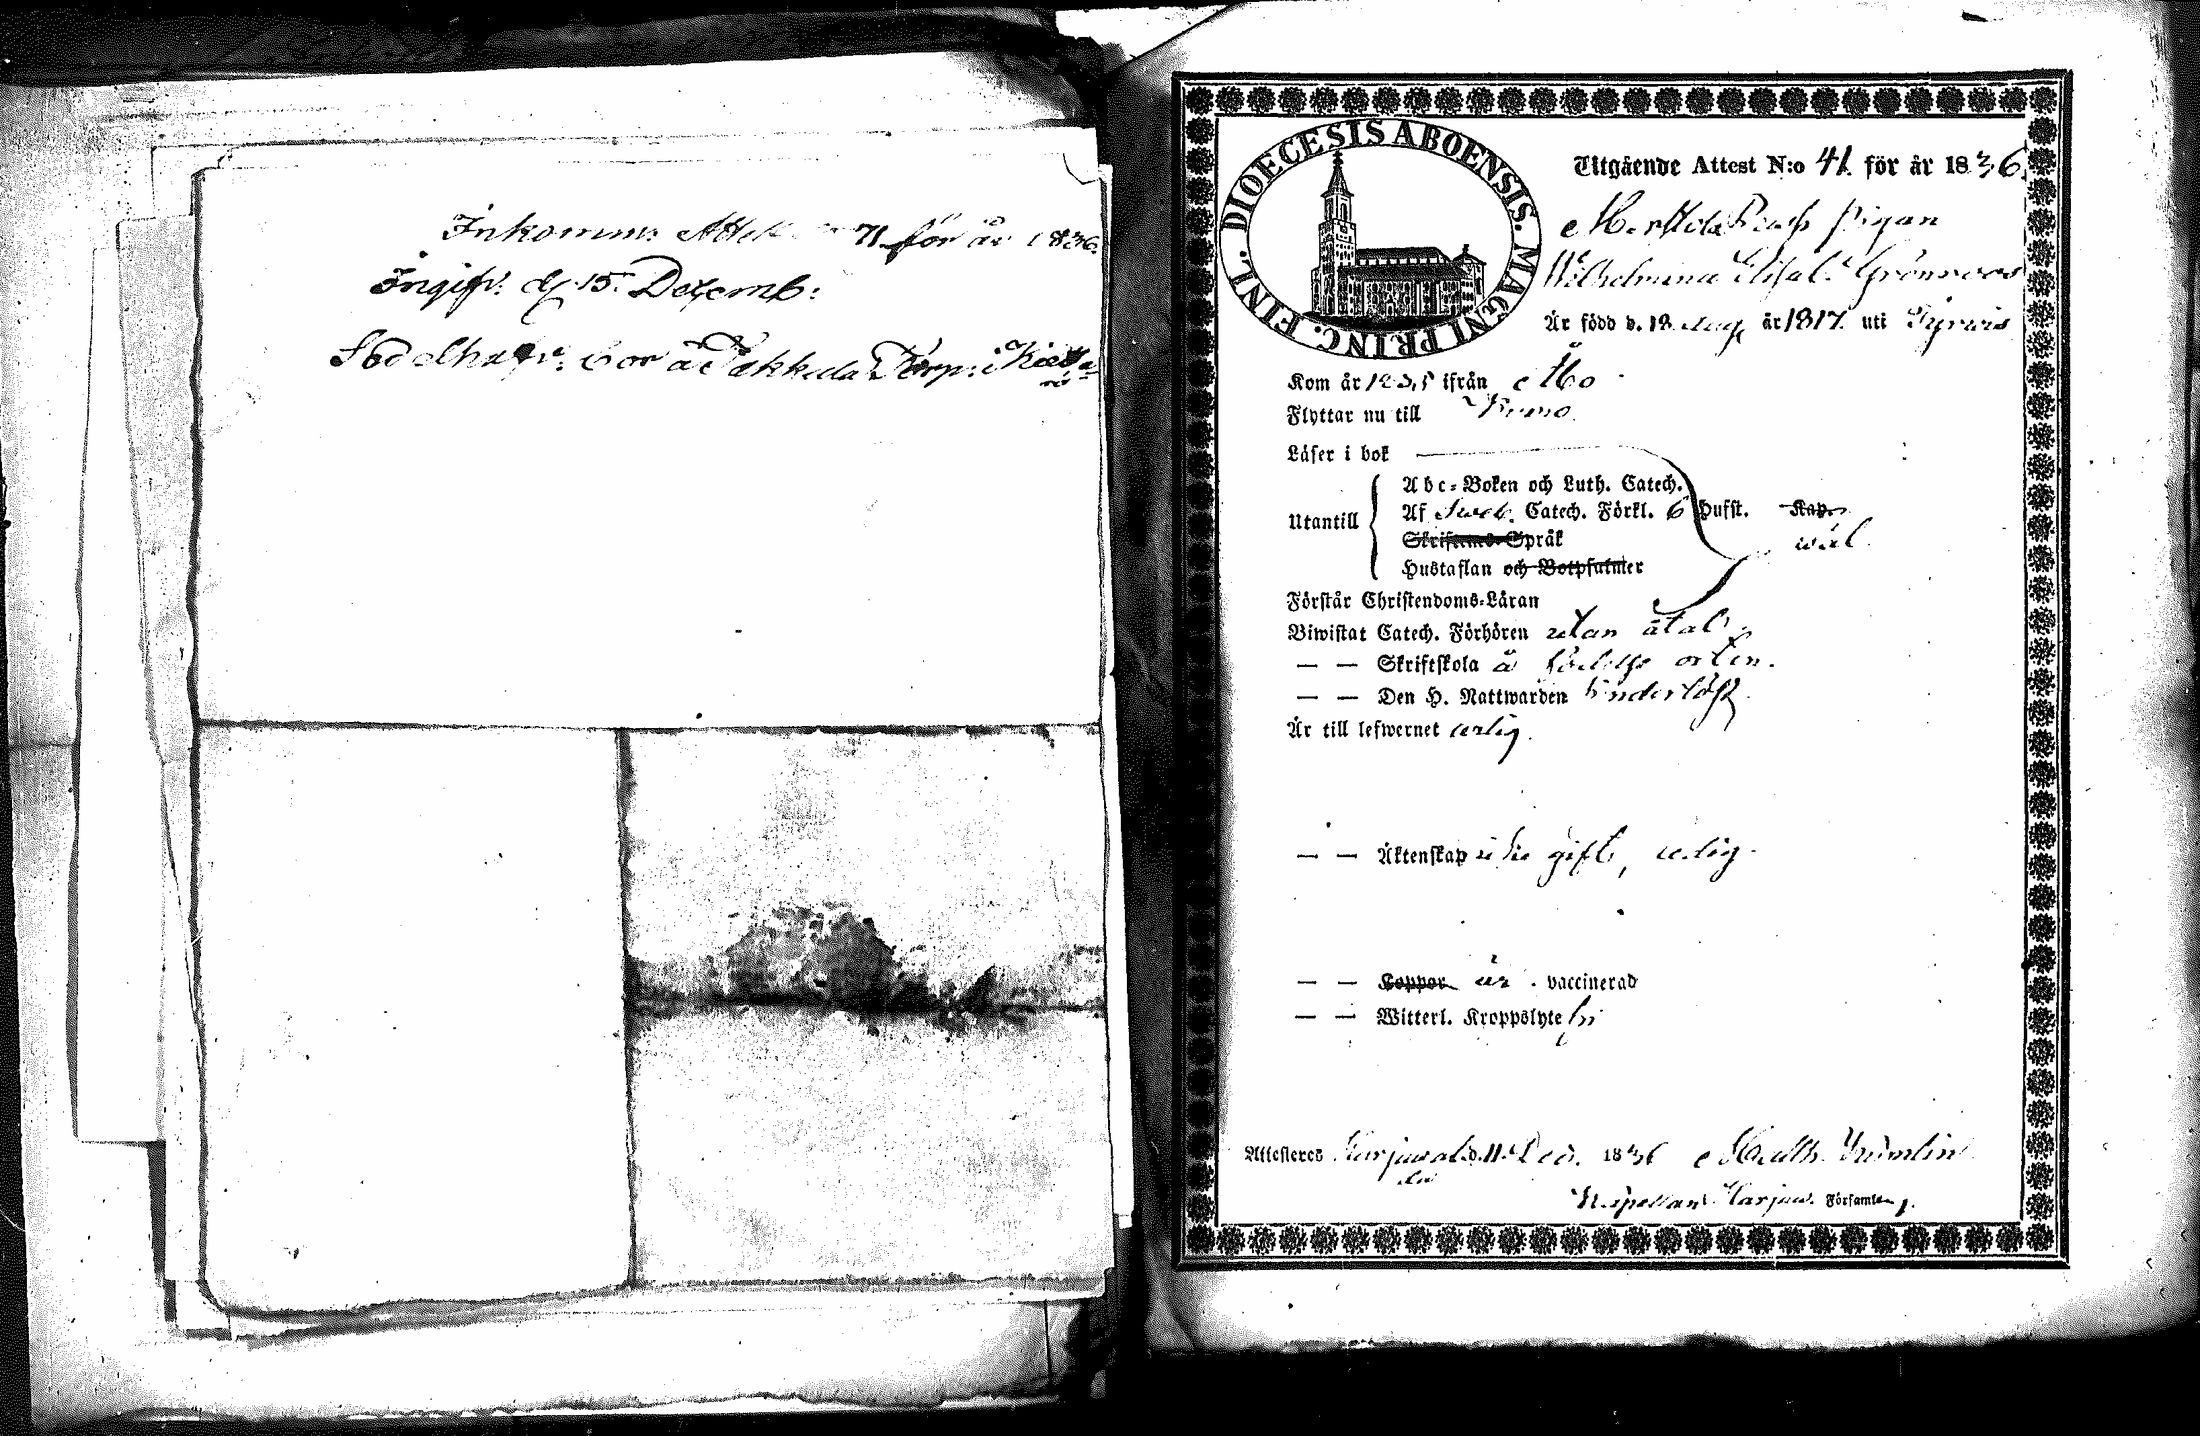 Inkomm: Attest 71 för år 1836.
Ingifv: d. 15 Decemb:
bor å Torp: i
DIOECESIS ABOENSIS. MAGNI PRINC. FINL.
Utgående Attest N:o 41 för år 1836
Pigan
Wilhelmina Elisab. Grönroos
År född d. 18 Aug. år 1817 uti Tyrwis
Kom år 1835 ifrån Åbo
Flyttar nu till Kumo.
Läser i bok
Utantill
Abc-Boken och Luth. Catech.
Af Sweb. Catech. Förkl. 6 Hufst. Kap.
wäl.
Skriftens Språk
Hustaflan och Botpsalmer
Förstår Christendoms-Läran
Biwistat Catech. Förhören utan åtal.
— — Skriftskola å födelse orten.
— — Den H. Nattwarden
År till lefwernet ärlig.
— — Äktenskap icke gift, ledig.
— — Koppor är vaccinerad
— — Witterl. Kroppslyte fri
Attesteras d. 11 Dec. 1836 Math.
Kapellan i Harjaw. Församling.